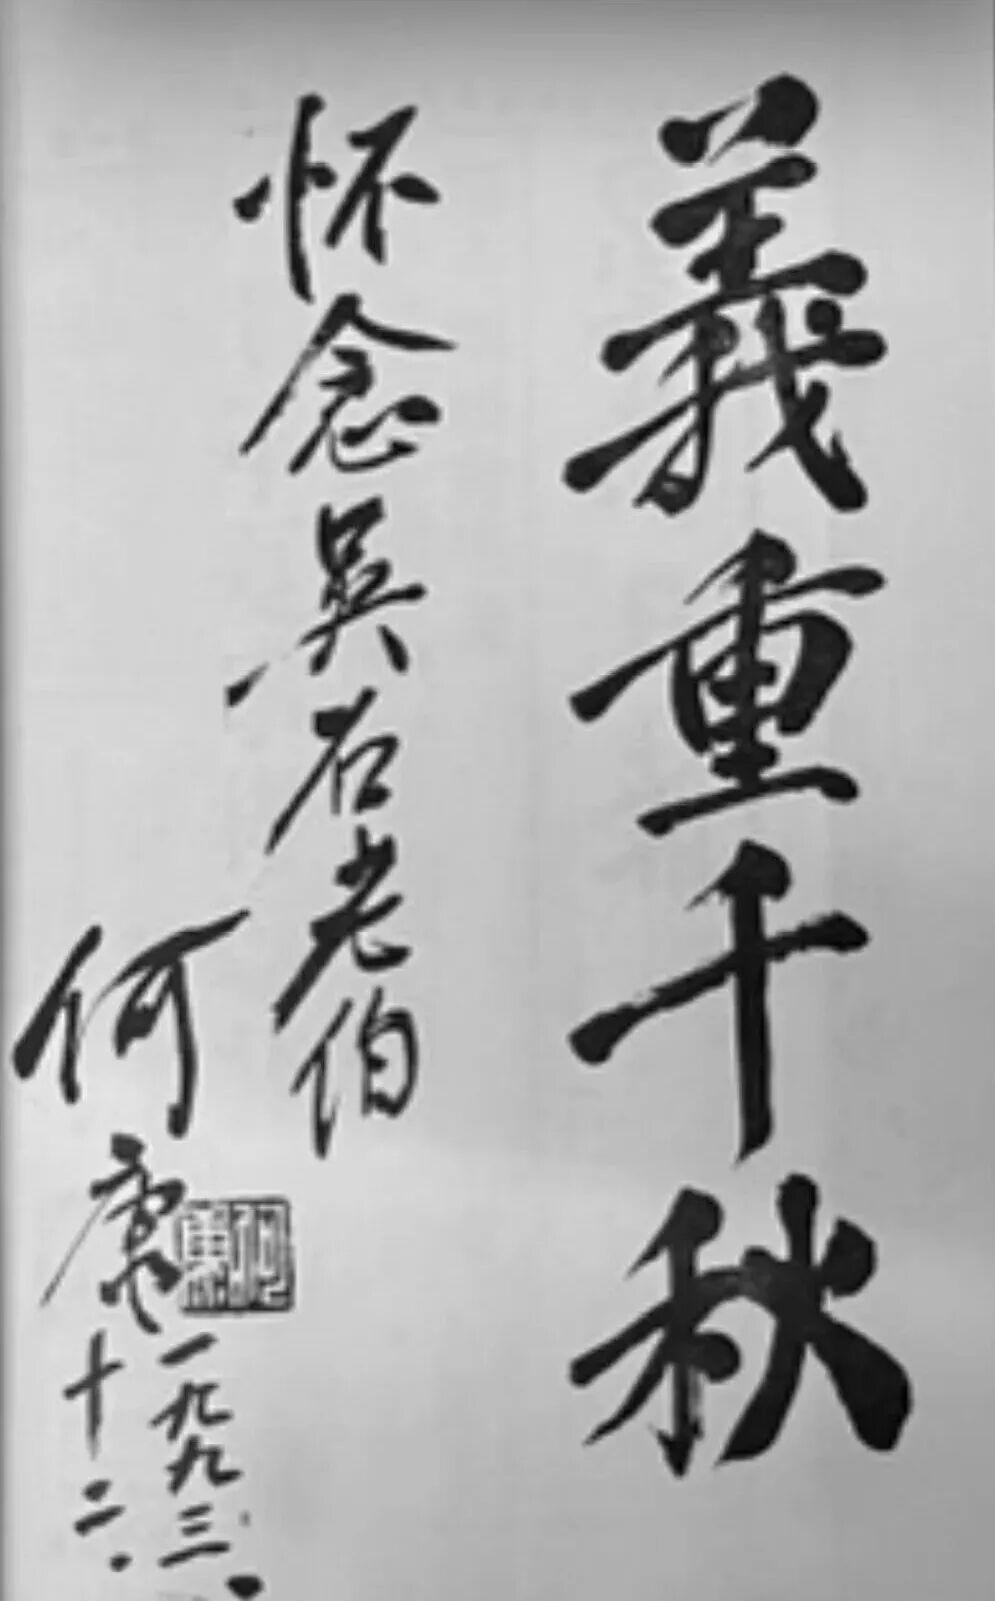 義重千秋
怀念吴石老伯
何康
一九九三、
十二.